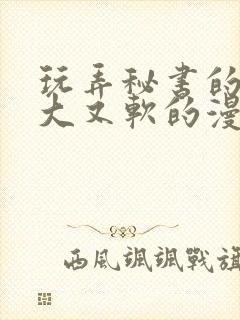 玩弄秘书的
大又軟的漫
西風颯颯戰旗